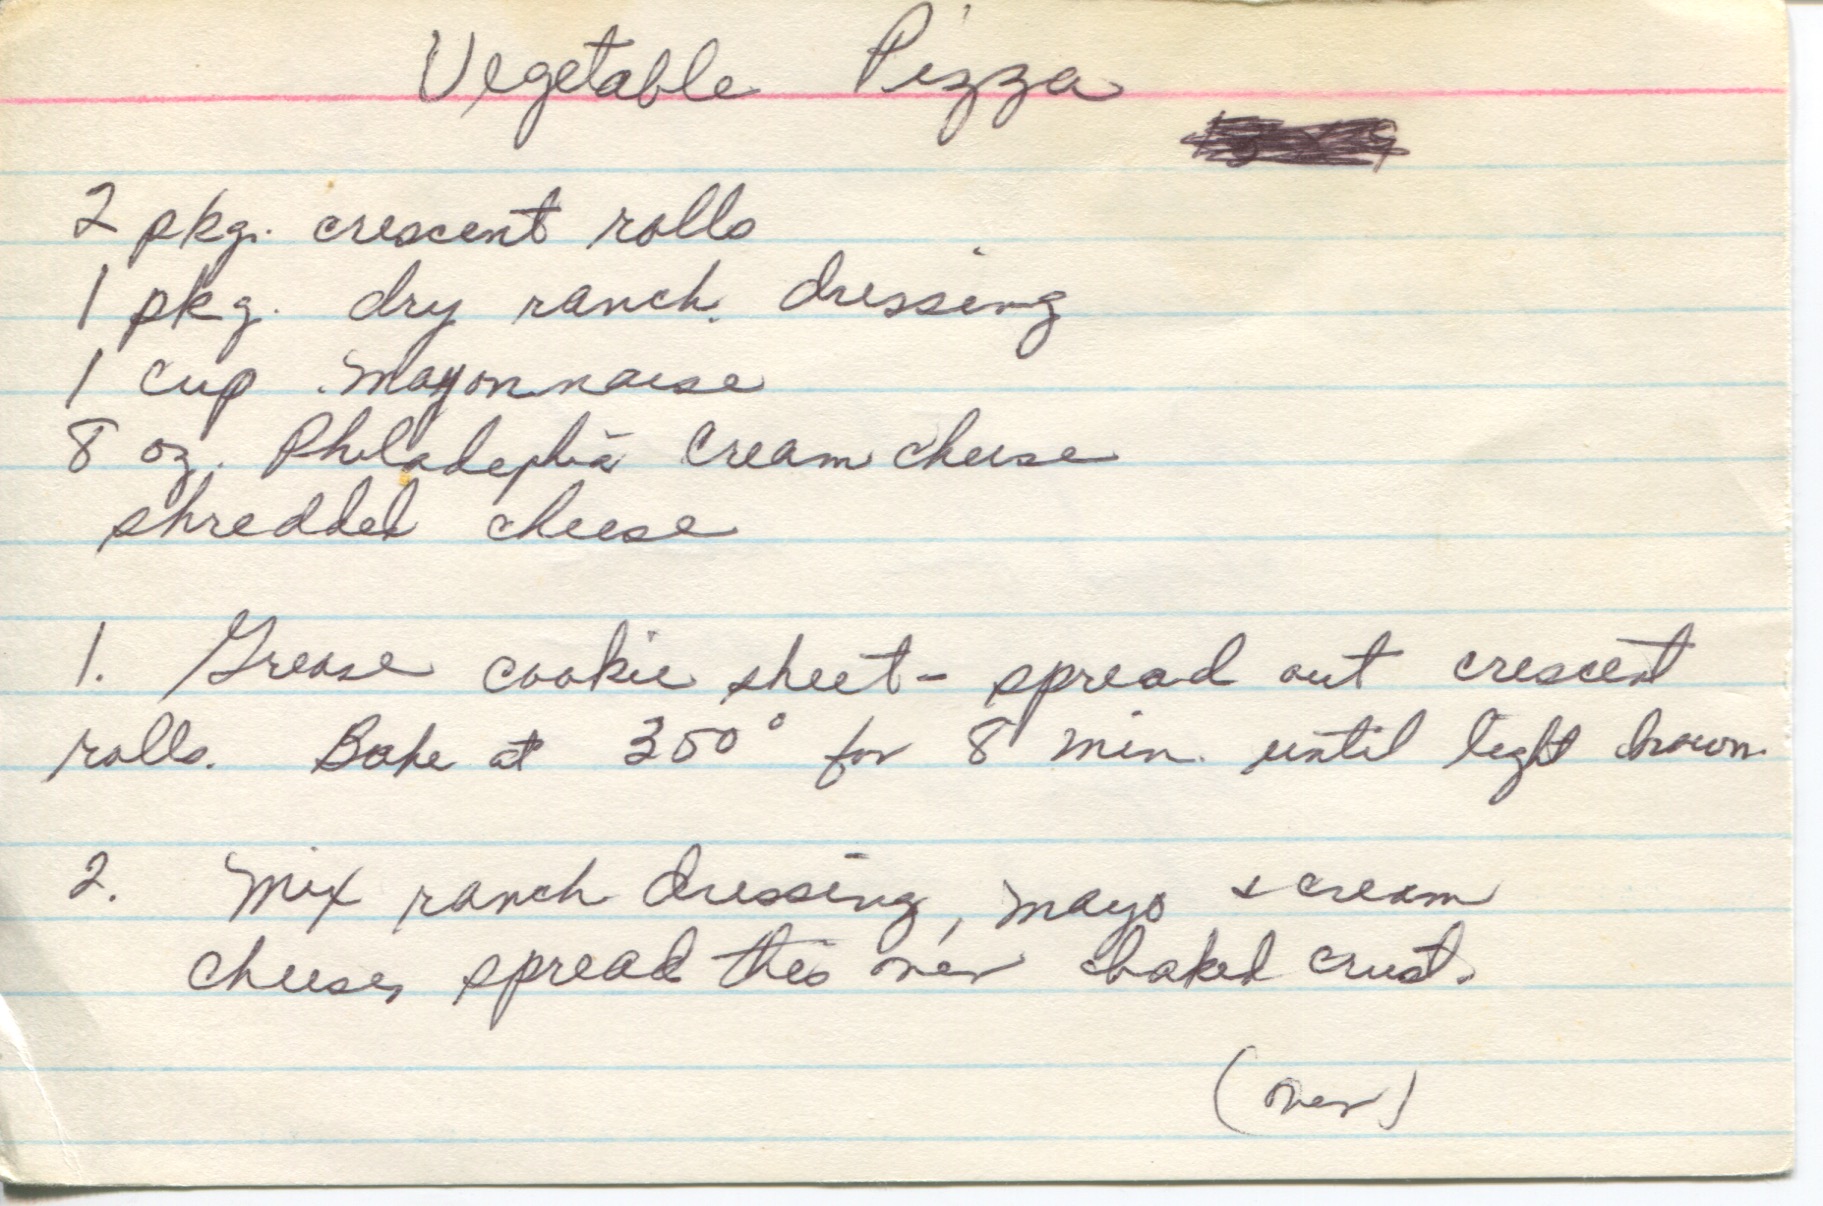 Vegetable Pizza
2 pkg. crescent rolls
1 pkg. dry ranch dressing
1 cup mayonnaise
8 oz. Philadephia Cream cheese
shredded cheese
1. Grease cookie sheet - spread out crescent
rolls. Bake at 350° for 8 min. until light brown.
2. Mix ranch dressing, mayo & cream
cheese, spread this over baked crust.
(over)